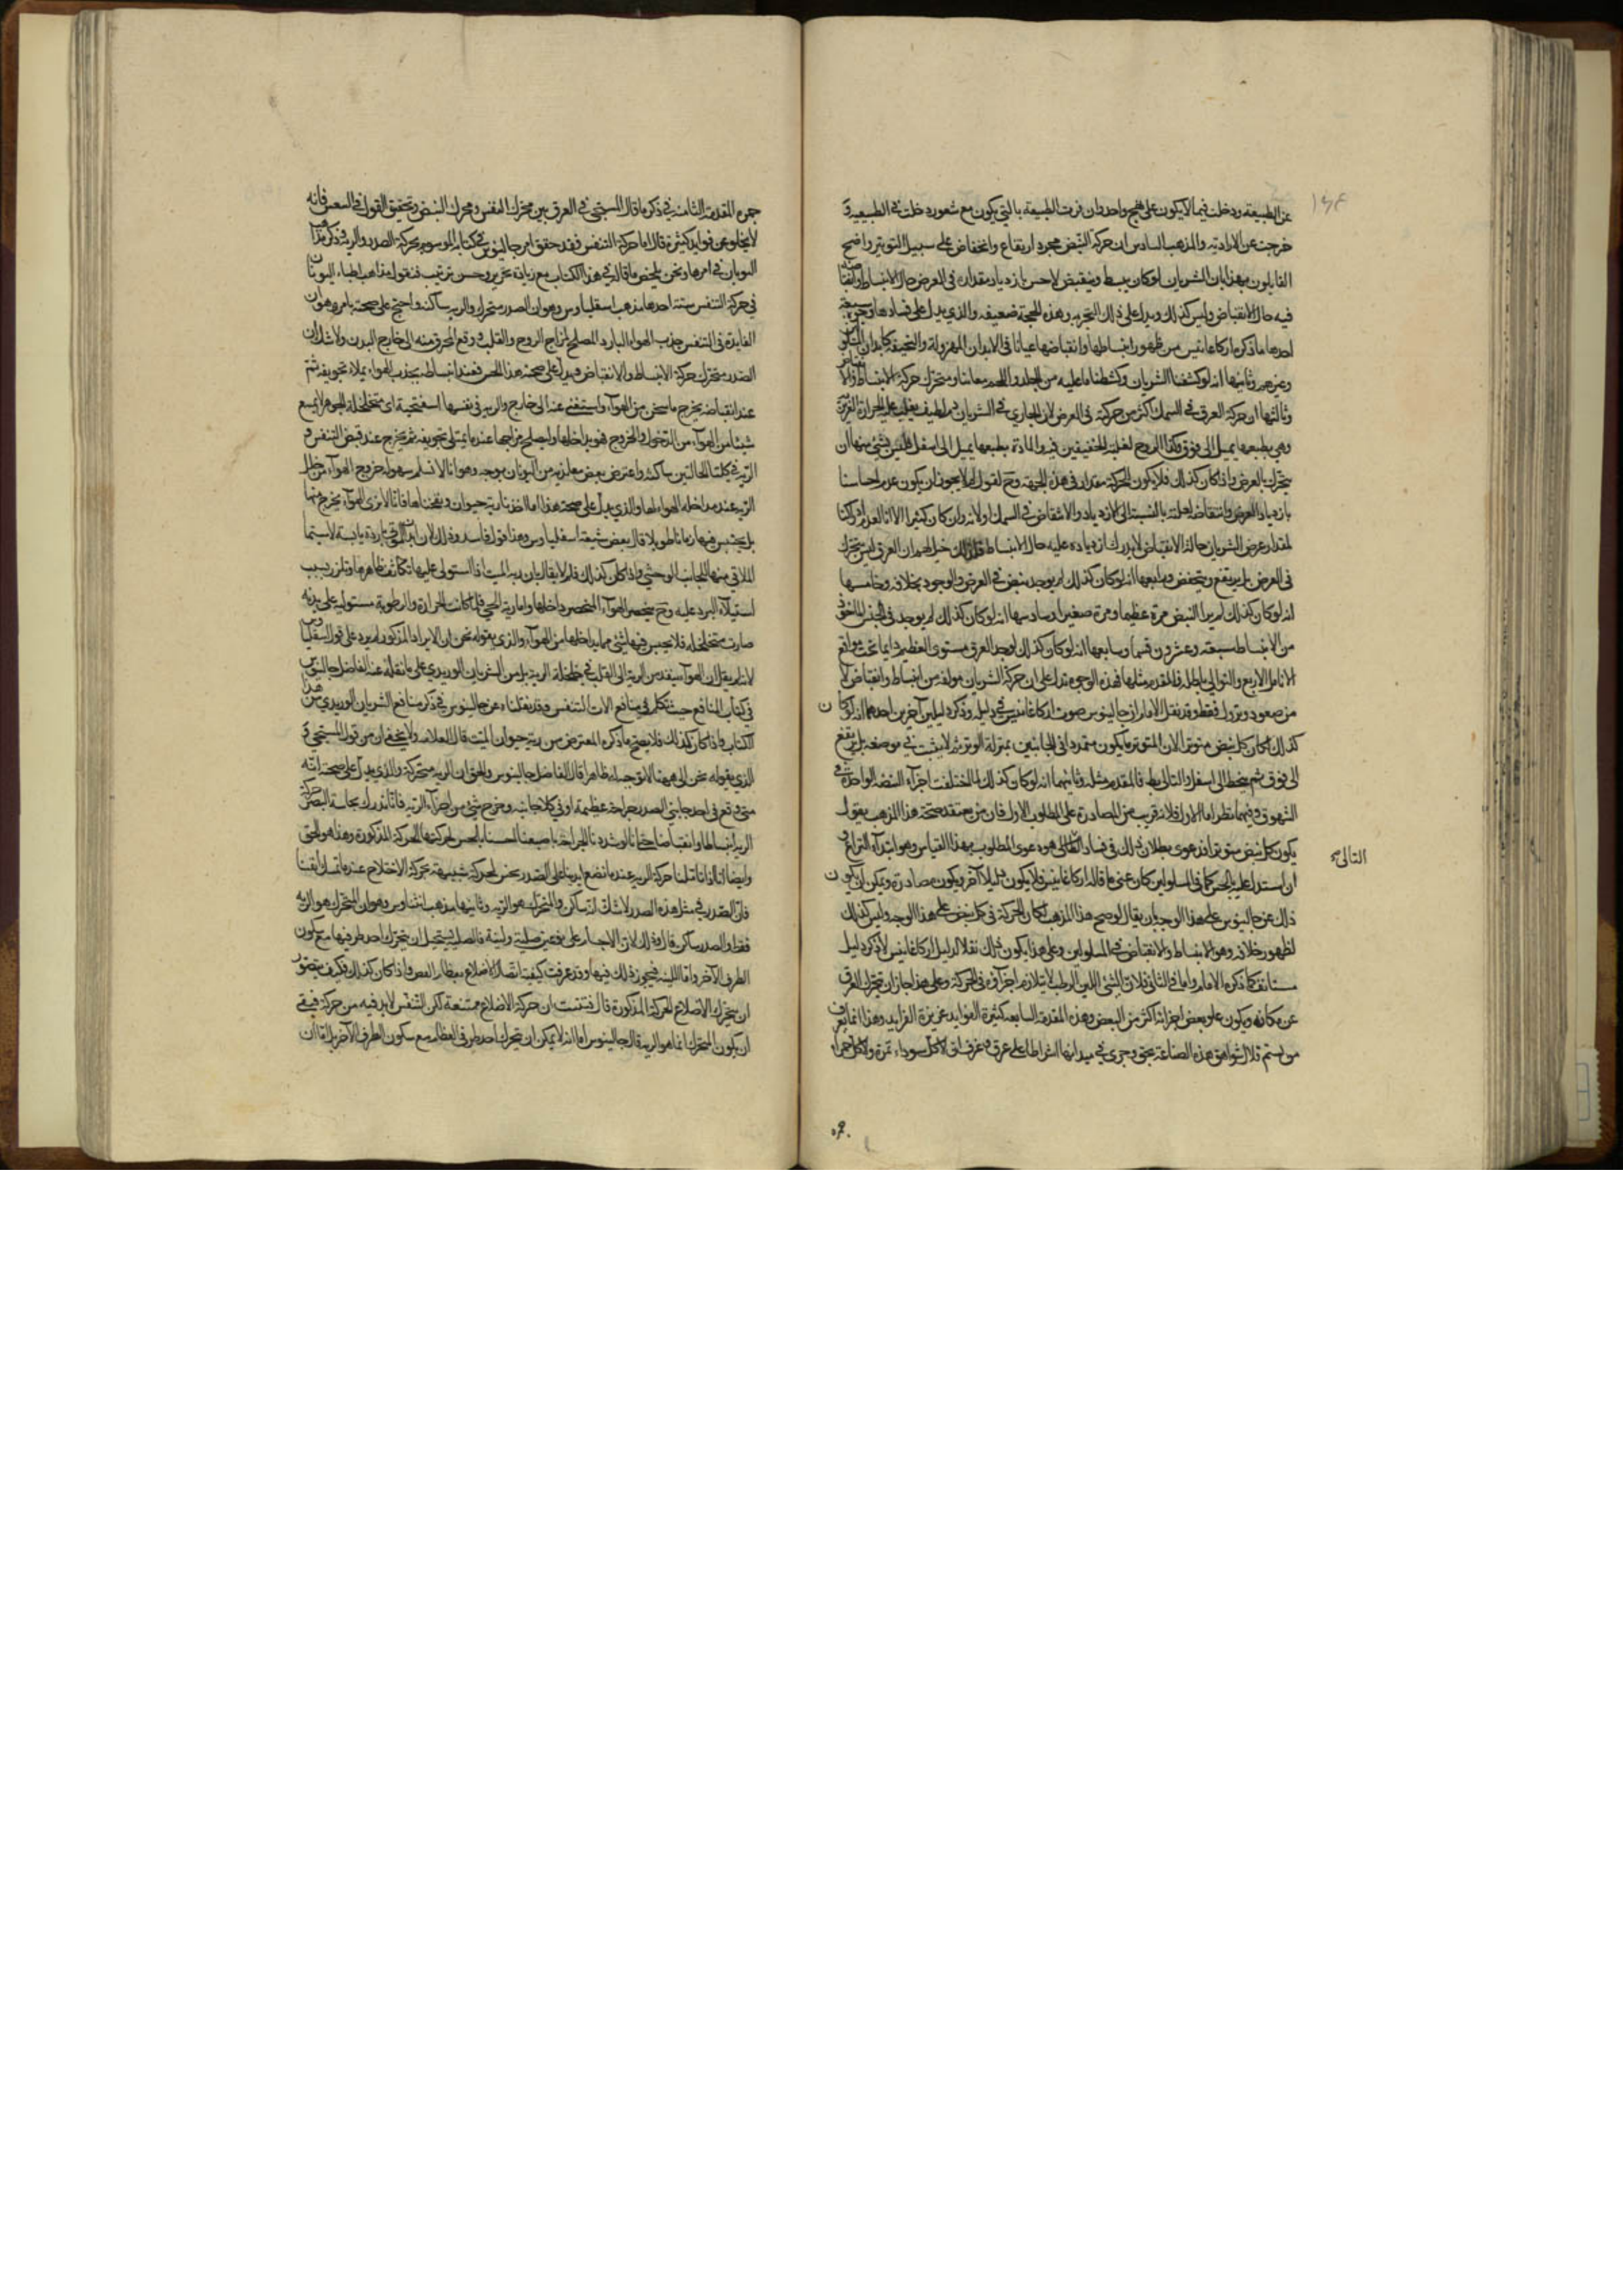 عن الطبيعة ودخلت فيما لا يكون على نهج واحد وان فزت الطبيعة بالتي يكون مع شعور دخلت في الطبيعية و
خرجت عن الارادية والمذهب السادس ان حركة النبض مجرد ارتفاع وانخفاض على سبيل التوتير واضح
القايلون بهذا بان الشريان لو كان يبسط وينقبض لاحس بازدياد مقداره في العرض حال الانبساط
فيه حال الانقباض وليس كذلك ويدل على ذلك التجربه وهذه الحجة ضعيفه والذي يدل على فسادها وجوه سبعة
احدها ما ذكره اركاغانيس من ظهور انبساطها وانقباضها عيانا في الابدان المهزولة والنحيفة كابدان
وغيرهم وثانيها انه لو كشفنا الشريان وكشطنا ما عليه من الجلد واللحم معاينا ومتحرك حركة الانبساط
وثالثها ان حركة العرق في السمك اكثر من حركته في العرض لان الجاري في الشريان دم لطيف يغلب عليه الحرارة
وهي بطبعها يميل الى فوق وكذا الروح لغلبة الخفيفين فيه والمادة بطبعها يميل الى اسفل فليس شئ منها ان
يتحرك بالعرض واذا كان كذلك فلا يكون للحركة مقدار في هذه الجهة وح لقول لم لا يجوز ان يكون عدم احساسنا
بازدياد العرض وانتقاضه لقلته بالنسبة الى الازدياد والانتقاض في السمك اولانه وان كان كثيرا الا انا
لمقدار عرض الشريان حالة الانقباض لا يدرك ازدياده عليه حال الانبساط فلذلك خيل لهم ان العرق ليس يتحرك
في العرض بل يرتفع وينخفض ورابعها انه لو كان كذلك لم يوجد نبض في العرض والوجود بخلافه وخامسها
انه لو كان كذلك لم ير النبض مرة عظيما ومرة صغيرا وسادسها انه لو كان كذلك لم يوجد في الجنس الماخوذ
من الانبساط سبعة وعشرون قسما وسابعها انه لو كان كذلك لوجد العرق مستوى العظم دايما تحت مواقع
الانامل الاربع والتوالي باطلة فالمقدم مثلها فهذه الوجوه تدل على ان حركة الشريان مولفة من انبساط وانقباض لا
من صعود ونزول فقط وقد نقل الامام ان جالينوس صوب اركاغانيس في دليله وذكر دليلين آخرين احدهما انه لو كان
كذلك لكان كل نبض متوترا لان المتوتر ما يكون متمددا في الجانبين بمنزلة الوتر ثم لا يثبت في موضعه بل يرتفع
الى فوق ثم ينحط الى اسفل والتالي بط فالمقدم مثله وثانيهما انه لو كان كذلك لما اختلفت اجزاء النبضة الواحدة في
الشهوق وفيهما نظر اما الاول فلانه قريب من المصادرة على المطلوب الاول فان من يعتقد صحة هذا المذهب يقول
يكون كل نبض متوترا فدعوى بطلان ذلك في فساد التالي هو دعوى المطلوب بهذا القياس وهو ابتداء النزاع
التالي صح
ان استدل عليه بالحس كما في المسلولين كان عنى ما قاله اركاغانيس فلا يكون دليلا آخر ويكون مصادرة ويمكن ان يكون
ذلك عن جالينوس على هذا الوجه بان يقال لو صح هذا المذهب لكان الحركة في كل نبض على هذا الوجه وليس كذلك
لظهور خلافه وهو الانبساط والانقباض في المسلولين وعلى هذا يكون ذلك نقلا لدليل اركاغانيس لا ذكر دليل
مستانف كما ذكره الامام واما في الثاني فلان الشئ اللين الرطب لا يتلازم اجزاؤه في الحركة وعلى هذا جاز ان يتحرك العرق
عن مكانه ويكون علو بعض اجزائه اكثر من البعض وهذه المقدمة السابعة كثيرة الفوايد غزيرة الفرايد وهذا انما يعرف
من تسنم قلال شواهق هذه الصناعة بحق وجرى في ميدانها اشواطا على عرق وعرف ان لا كل سوداء تمرة ولا كل حمراء
جمرة المقدمة الثامنة في ذكر ما قال المسيحي في الفرق بين محرك النفس ومحرك النبض وتحقيق القول في النفس فانه
لا يخلو عن فوايد كثيرة قال اما حركة التنفس فقد حقق امرها جالينوس في كتابه الموسوم بحركة الصدر والرية وذكر مذاهب
اليونان في امرها ونحن نلخص ما قاله في هذا الكتاب مع زيادة تحرير وحسن ترتيب فنقول مذاهب اطباء اليونان
في حركة التنفس ستة احدها مذهب اسقليبادس وهو ان الصدر متحرك والرية ساكنة واحتج على صحته بامر وهو ان
الفايدة في التنفس جذب الهواء البارد المصلح لمزاج الروح والقلب ودفع المحترق منه الى خارج البدن ولا شك ان
الصدر متحرك حركة الانبساط والانقباض ويدل على صحة هذا الحس فعند انبساطه يجذب الهواء يملاء تجويفه ثم
عند انقباضه يخرج ما سخن من الهواء واستغنى عنه الى خارج والرية في نفسها اسفنجية اى متخلخلة الجوهر لا يمنع
شيئا من الهواء من الدخول والخروج فهو يداخلها ويصلح مزاجها عندما يمتلى تجويفه ثم يخرج عند قبض التنفس و
الرية في كلتا الحالتين ساكنة واعترض بعض معلميه من اليونان بوجه وهو انا لا نسلم سهولة خروج الهواء من داخل
الرية عند مداخلة الهواء لها والذي يدل على صحة هذا اما اخذنا رية حيوان ونفخناها فانا لا نرى الهواء يخرج منها
بل يحتبس فيها زمانا طويلا قال بعض شيعة اسقليبادس وهذا قول فاسد وذلك لان الموتى باردة يابسة لا سيما
الملاقي منها للجانب الوحشي واذا كان كذلك فلم لا يقال بان رية الميت اذا استولى عليها تكاثف ظاهرها وتلزز بسبب
استيلاء البرد عليه وح ينحصر الهواء المنحصر داخلها واما رية الحي فلما كانت الحرارة والرطوبة مستولية على بدنه
صارت متخلخلة فلا يحبس فيها شئ مما يداخلها من الهواء والذي يقوله نحن ان الايراد المذكور لم يرد على قول
لانا لم يقل ان الهواء ينفد من الرية الى القلب في خلخلة الرية بل من الشريان الوريدي على ما نقلناه عن الفاضل جالينوس
في كتاب المنافع حيث تكلم في منافع الات التنفس وقد نقلناه عن جالينوس في ذكر منافع الشريان الوريدي من هذا
الكتاب واذا كان كذلك فلا يصح ما ذكره المعترض من رية حيوان الميت قال العلامة ولا يخفى ان من قول المسيحي و
الذي يقوله نحن الى ههنا لا يوجه له ظاهرا قال الفاضل جالينوس والحق ان الرية متحركة والذي يدل على صحته انه
متى وقع في احد جانبي الصدر جراحة عظيمة او في كلا جانبيه وخرج شئ من اجزاء الرية فانا ندرك بحاسة البصر حركة
الرية انبساطا وانقباضا حتى انا لو شددنا الجراحة باصبعنا احسسنا بالحس لحركتها الحركة المذكورة وهذا هو الحق
وايضا انا اذا تاملنا حركة الرية عندما نضع ايدينا على الصدر نحس لحركة شبيهة بحركة الاختلاج عندما
فان الصدر في مثل هذه الصدر لا شك انه ساكن والمتحرك هو الرية وثانيها مذهب وهو ان المتحرك هو الرية
فقط والصدر ساكن قال وذلك لان الاجسام على نوعين صلبة ولينة فالصلبة يستحيل ان يتحرك احد طرفيها مع سكون
الطرف الآخر واما اللينة فيجوز ذلك فيها وقد عرفت كيفية اتصال الاضلاع بعظام القص واذا كان كذلك فكيف يتصور
ان يتحرك الاضلاع الحركة المذكورة قال فتثبت بان حركة الاضلاع ممتنعة لكن التنفس لا بد فيه من حركة فبقي
ان يكون المتحرك انما هو الرية قال جالينوس اما انه لا يمكن ان يتحرك احد طرفي العظام مع سكون الطرف الآخر